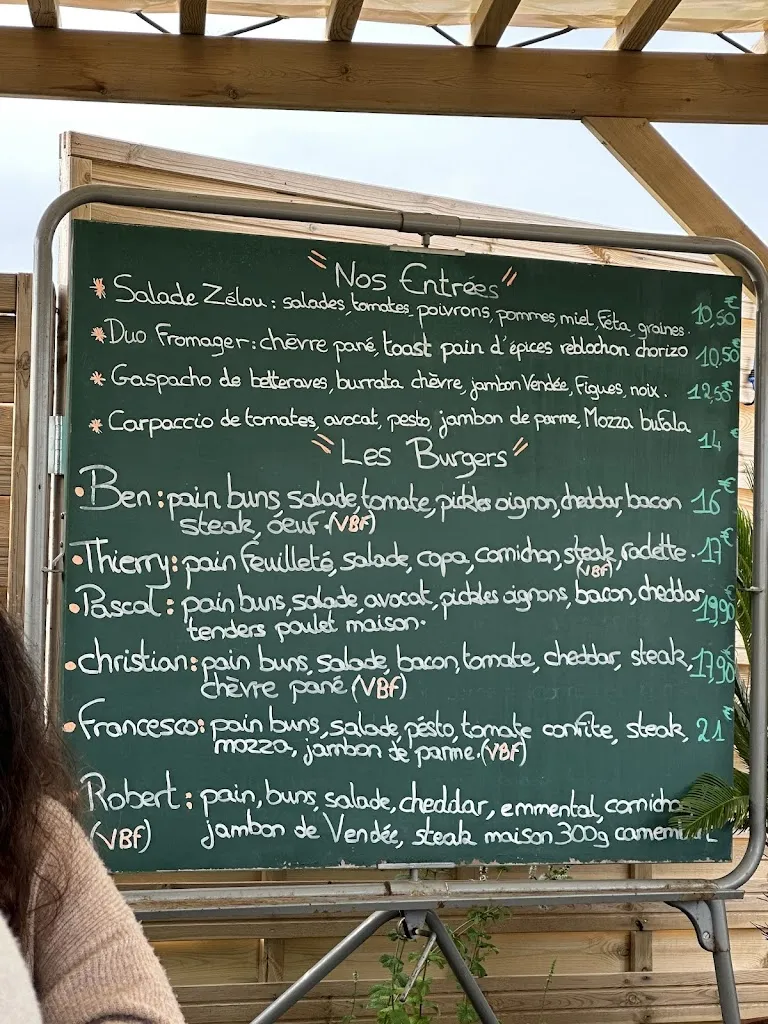 " Nos Entrées "
* Salade Zélou : salades, tomates, poivrons, pommes, miel, féta, graines. 10,50€
* Duo Fromager : chèvre pané, toast pain d'épices reblochon chorizo 10,50€
* Gaspacho de betteraves, burrata chèvre, jambon Vendée, Figues, noix. 12,50€
* Carpaccio de tomates, avocat, pesto, jambon de parme, Mozza bufala 14€
" Les Burgers "
• Ben : pain buns, salade, tomate, pickles oignon, cheddar, bacon 16€
steak, oeuf. (VBF)
• Thierry : pain feuilleté, salade, copa, cornichon, steak, raclette. 17€
(VBF)
• Pascal : pain buns, salade, avocat, pickles oignons, bacon, cheddar, 19,90
tenders poulet maison.
• christian : pain buns, salade, bacon, tomate, cheddar, steak, 17,90€
chèvre pané (VBF)
• Francesco : pain buns, salade, pésto, tomate confite, steak, 21€
mozza, jambon de parme. (VBF)
Robert : pain, buns, salade, cheddar, emmental,
(VBF) jambon de Vendée, steak maison 300g